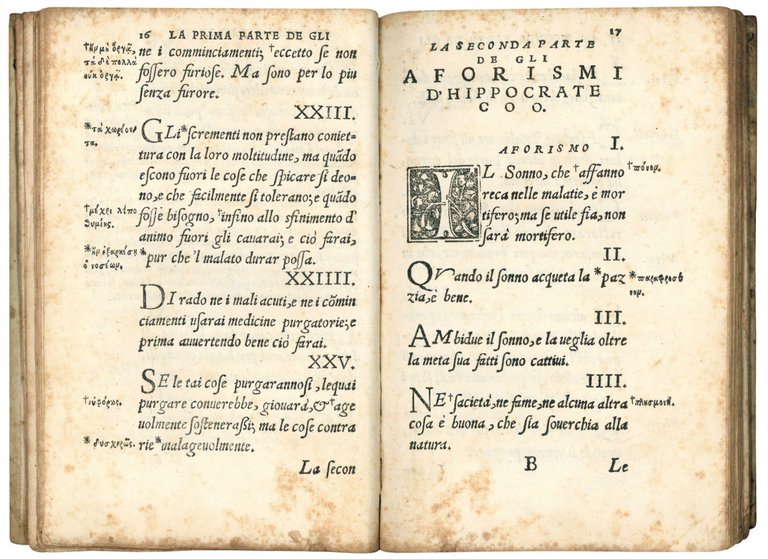 16 LA PRIMA PARTE DE GLI
ne i comminciamenti; †eccetto se non
fossero furiose. Ma sono per lo piu
senza furore.
XXIII.
GLi *screménti non prestano coniet
tura con la loro moltitudine, ma quādo
escono fuori le cose che spicare si deo-
no, e che facilmente si tolerano; e quādo
fosse bisogno, †infino allo sfinimento d'
animo fuori gli cavarai; e ciò farai,
pur che 'l malato durar possa.
XXIIII.
DI rado ne i mali acuti, e ne i cōmin
ciamenti usarai medicine purgatorie; e
prima auuertendo bene ciò farai.
XXV.
SE le tai cose purgarannosi, lequai
purgare conuerebbe, giouarà, &†age
uolmente sostenerassi; ma le cose contra
rie *malageuolmente.
La secon
†ἢν μὴ ὀργᾷ,
τὰ δὲ πολλὰ
οὐκ ὀργᾷ.
*τὰ χωρέον
τα.
†μέχρι λιπο
θυμίης.
†εὐφόρως.
*δυσχερῶς.
17
LA SECONDA PARTE
DE GLI
AFORISMI
D'HIPPOCRATE
COO.
AFORISMO I.
IL Sonno, che †affanno
reca nelle malatie, è mor
tifero; ma se utile fia, non
sarà mortifero.
†πόνον.
II.
QVando il sonno acqueta la *paz
zia, è bene.
*παραφροσύ
νην.
III.
AMbidue il sonno, e la ueglia oltre
la meta sua fatti sono cattiui.
IIII.
NE †sacietà, ne fame, ne alcuna altra
cosa è buona, che sia souerchia alla
natura.
†πλησμονή.
B Le